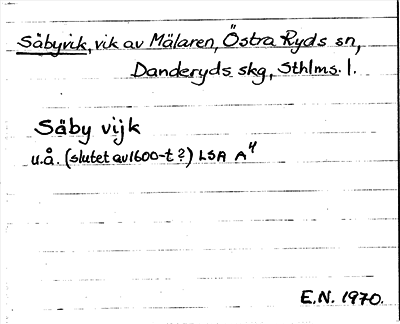 Säbyvik, vik av Mälaren, Östra Ryds sn,
Danderyds skg, Sthlms. l.
Säby vijk
u.å. (slutet av 1600-t?) LSA A⁴
E.N. 1970.